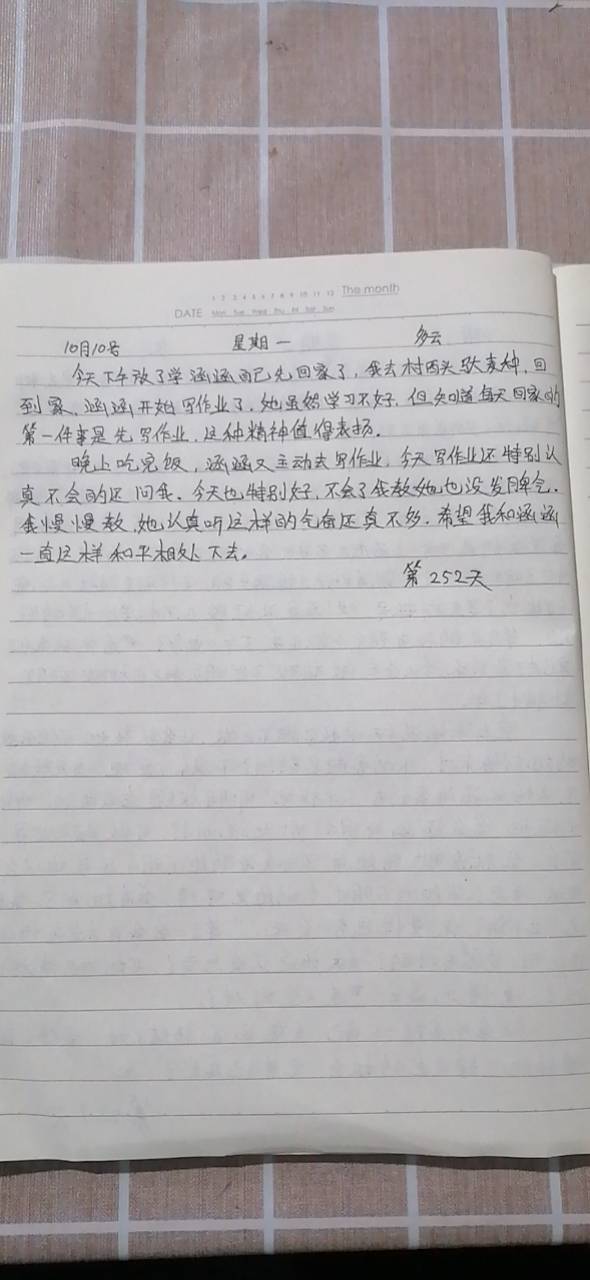 1 2 3 4 5 6 7 8 9 10 11 12 The month
DATE Mon Tue Wed Thu Fri Sat Sun
10月10号 星期一 多云
今天下午放了学涵涵自己先回家了，我去村西头耿麦种，回
到家，涵涵开始写作业了。她虽然学习不好，但知道每天回家的
第一件事是先写作业，这种精神值得表扬。
晚上吃完饭，涵涵又主动去写作业，今天写作业还特别认
真不会的还问我。今天也特别好，不会了我教她也没发脾气。
我慢慢教，她认真听这样的气奋还真不多，希望我和涵涵
一直这样和平相处下去。
第252天